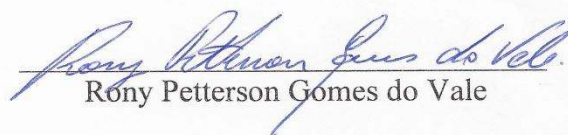 Rony Petterson Gomes do Vale
Rony Petterson Gomes do Vale